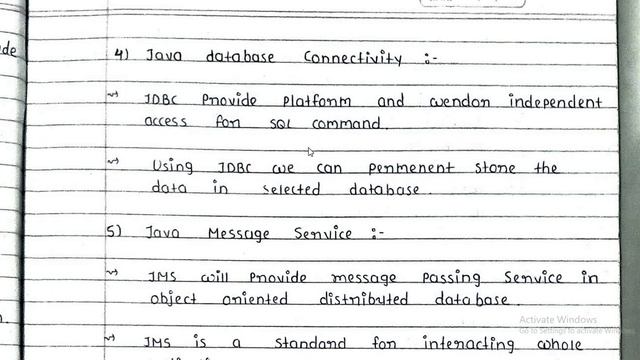 de
4) Java database Connectivity :-
→ JDBC Provide Platform and wendor independent
access for SQL command.
→ Using JDBC we can permenent store the
data in selected database.
5) Java Message Service :-
→ JMS will Provide message passing Service in
object oriented distributed database.
→ JMS is a standard for interacting whole
Activate Windows
Go to Settings to activate Windows.